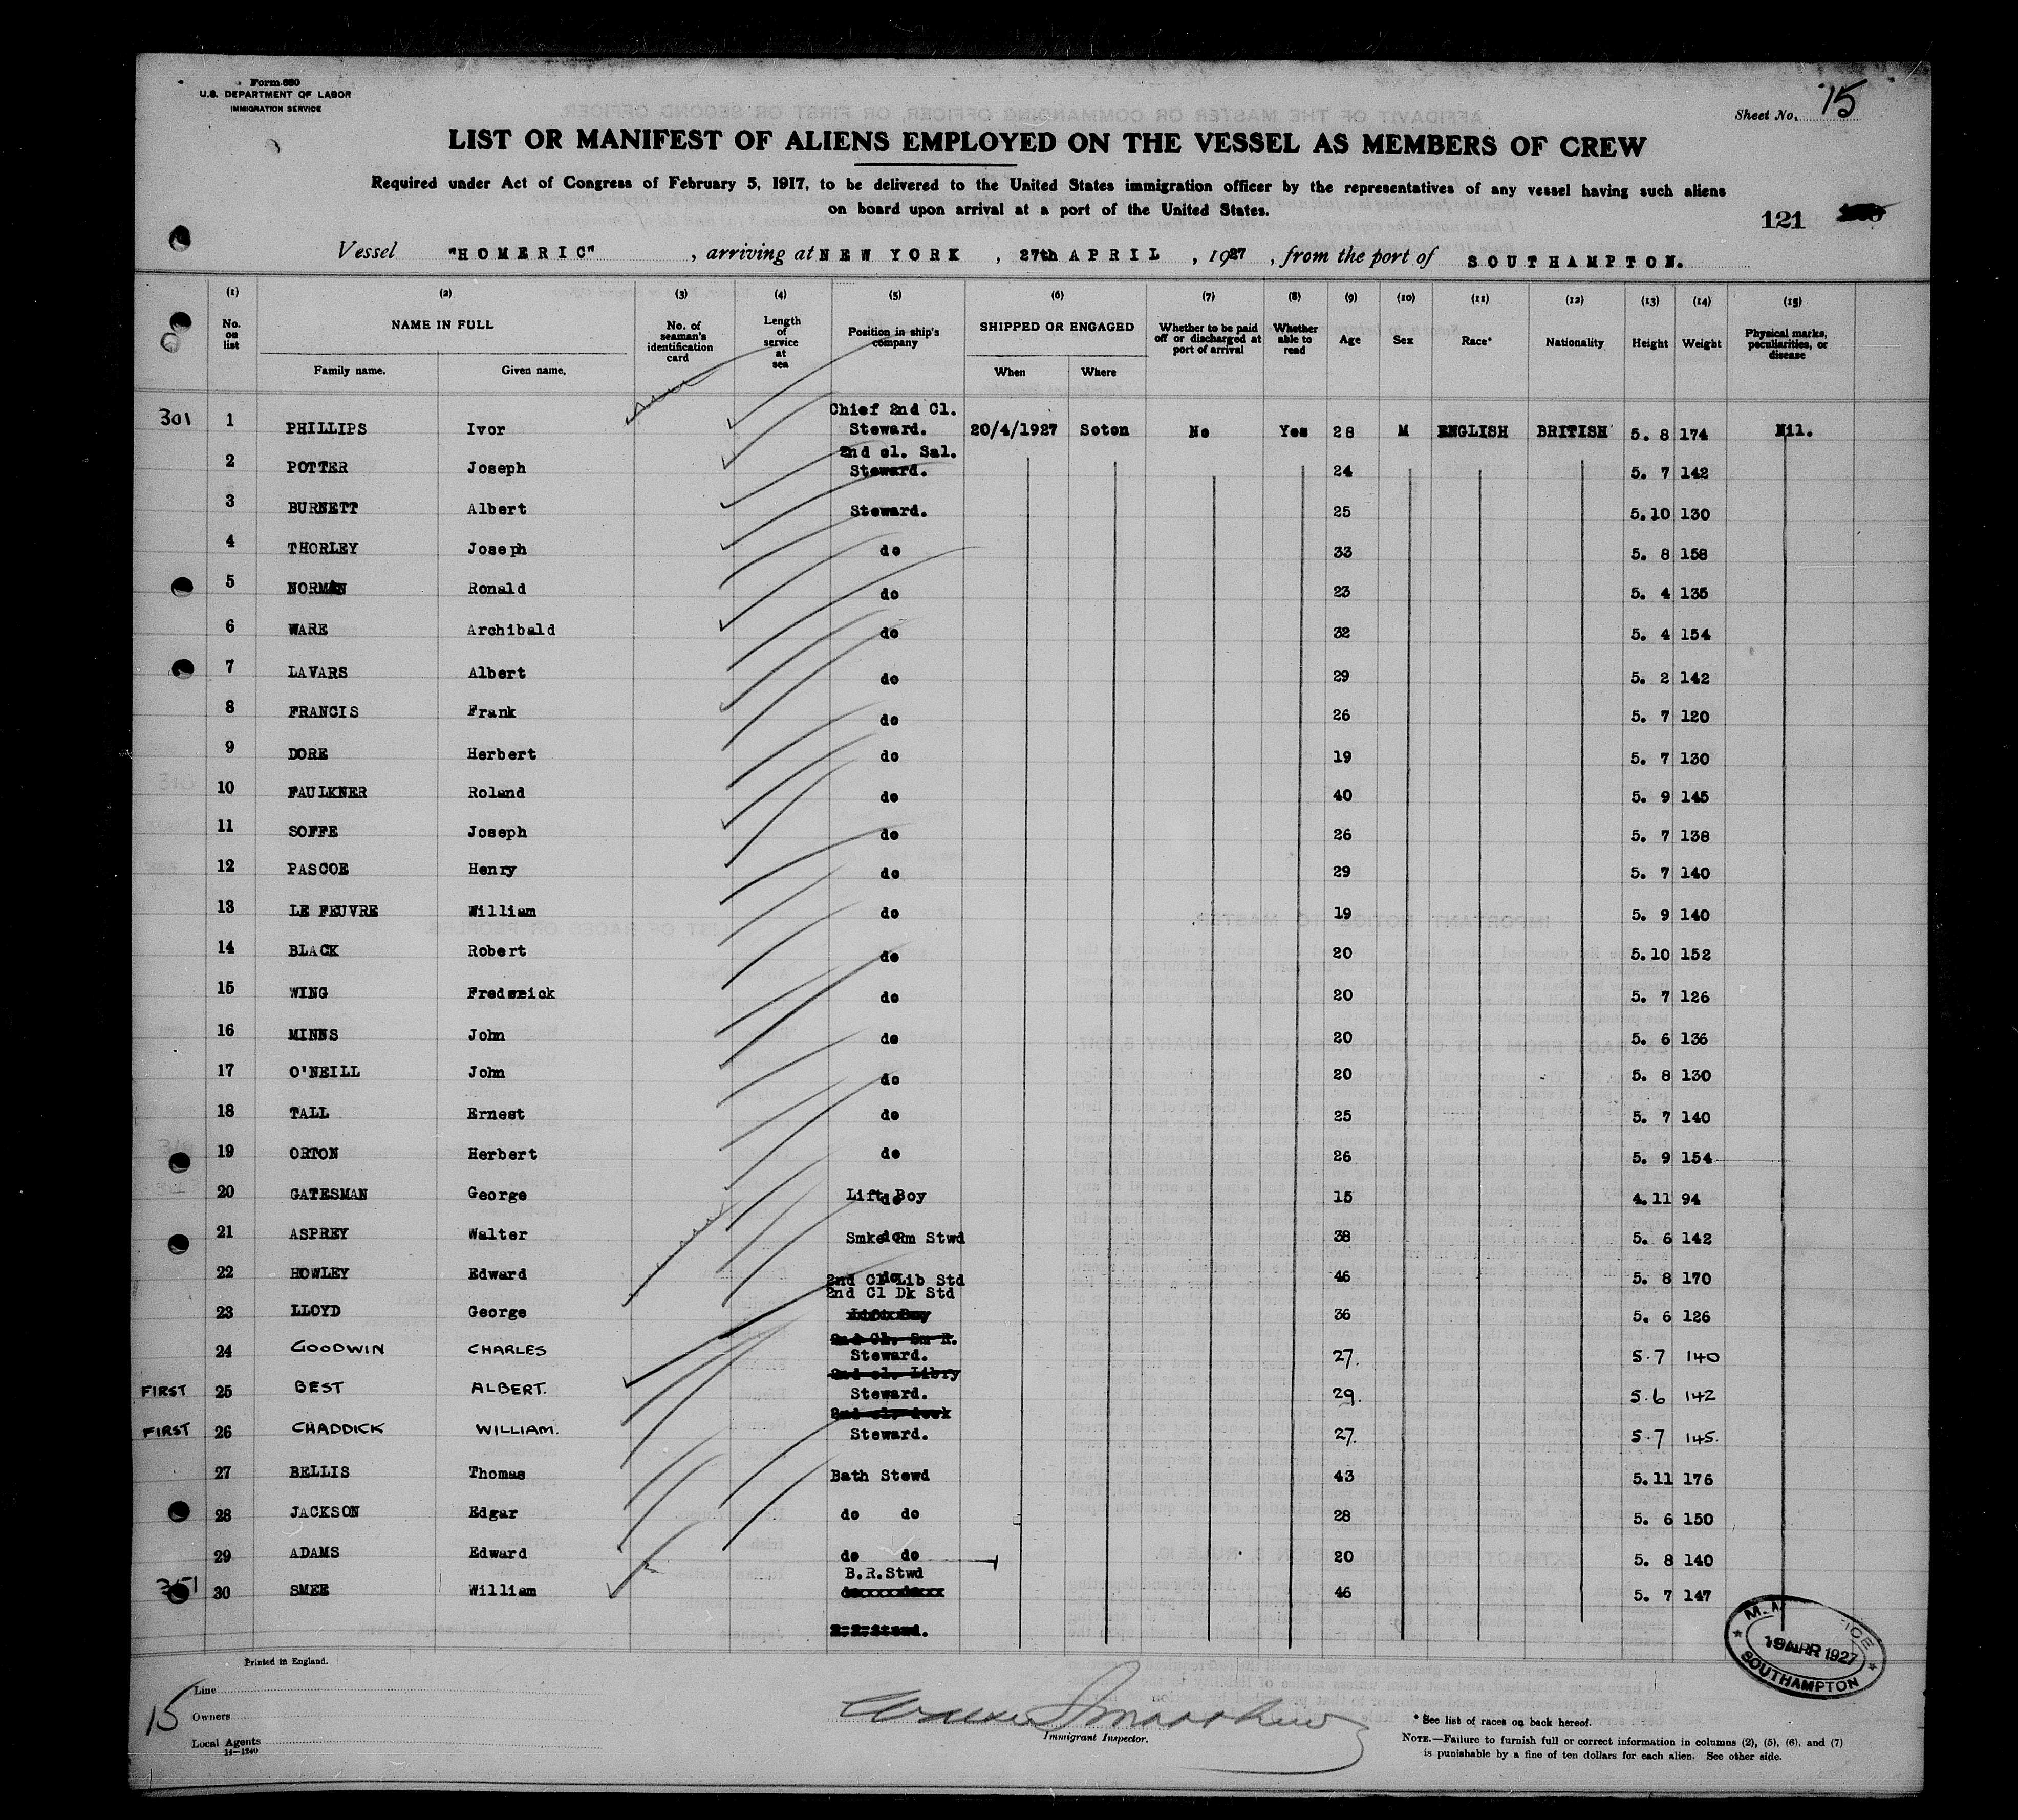 Form 680
U.S. DEPARTMENT OF LABOR
IMMIGRATION SERVICE
Sheet No. 15
LIST OR MANIFEST OF ALIENS EMPLOYED ON THE VESSEL AS MEMBERS OF CREW
Required under Act of Congress of February 5, 1917, to be delivered to the United States immigration officer by the representatives of any vessel having such aliens
on board upon arrival at a port of the United States.
121
Vessel "HOMERIC", arriving at NEW YORK, 27th APRIL, 1927, from the port of SOUTHAMPTON.
(1) (2) (3) (4) (5) (6) (7) (8) (9) (10) (11) (12) (13) (14) (15)
No. on list NAME IN FULL Family name. Given name. No. of seaman's identification card Length of service at sea Position in ship's company SHIPPED OR ENGAGED When Where Whether to be paid off or discharged at port of arrival Whether able to read Age Sex Race* Nationality Height Weight Physical marks, peculiarities, or disease
301 1 PHILLIPS Ivor Chief 2nd Cl. Steward. 20/4/1927 Soton No Yes 28 M ENGLISH BRITISH 5. 8 174 Nil.
2 POTTER Joseph 2nd cl. Sal. Steward. 24 5. 7 142
3 BURNETT Albert Steward. 25 5.10 130
4 THORLEY Joseph do 33 5. 8 158
5 NORMAN Ronald do 23 5. 4 135
6 WARE Archibald do 32 5. 4 154
7 LAVARS Albert do 29 5. 2 142
8 FRANCIS Frank do 26 5. 7 120
9 DORE Herbert do 19 5. 7 130
10 FAULKNER Roland do 40 5. 9 145
11 SOFFE Joseph do 26 5. 7 138
12 PASCOE Henry do 29 5. 7 140
13 LE FEUVRE William do 19 5. 9 140
14 BLACK Robert do 20 5.10 152
15 WING Frederick do 20 5. 7 126
16 MINNS John do 20 5. 6 136
17 O'NEILL John do 20 5. 8 130
18 TALL Ernest do 25 5. 7 140
19 ORTON Herbert do 26 5. 9 154
20 GATESMAN George Lift Boy do 15 4.11 94
21 ASPREY Walter Smke Rm Stwd do 38 5. 6 142
22 HOWLEY Edward 2nd Cl Lib Std do 46 5. 8 170
23 LLOYD George 2nd Cl Dk Std Lift Boy 36 5. 6 126
24 GOODWIN CHARLES 2nd Cl. Sm R. Steward. 27. 5.7 140
FIRST 25 BEST ALBERT. 2nd cl. Libry Steward. 29. 5.6 142
FIRST 26 CHADDICK WILLIAM. 2nd cl. deck Steward. 27. 5.7 145.
27 BELLIS Thomas Bath Stewd 43 5.11 176
28 JACKSON Edgar do do 28 5. 6 150
29 ADAMS Edward do do 20 5. 8 140
30 SMEE William B.R.Stwd 46 5. 7 147
M.M. OFFICE
APR 1927
SOUTHAMPTON
Printed in England.
15
Line
Owners
Local Agents
14—1240
Immigrant Inspector.
* See list of races on back hereof.
NOTE.—Failure to furnish full or correct information in columns (2), (5), (6), and (7)
is punishable by a fine of ten dollars for each alien. See other side.